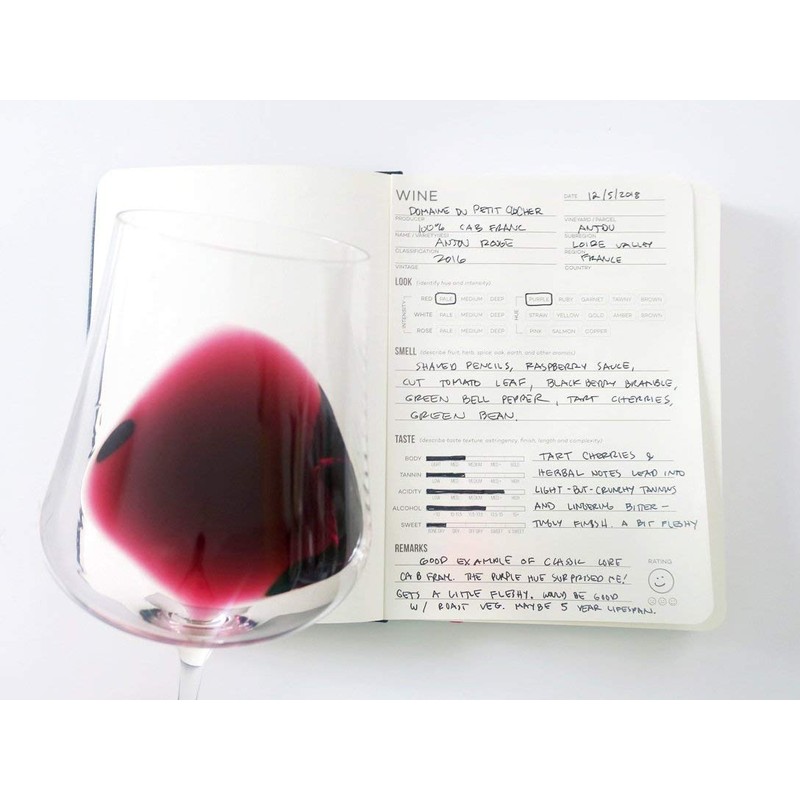 WINE
DATE 12/5/2018
DOMAINE DU PETIT CLOCHER
PRODUCER
VINEYARD / PARCEL
100% CAB FRANC
ANJOU
NAME / VARIETY(IES)
SUBREGION
ANJOU ROUGE
LOIRE VALLEY
CLASSIFICATION
REGION
2016
FRANCE
VINTAGE
COUNTRY
LOOK (identify hue and intensity)
INTENSITY
HUE
RED PALE MEDIUM DEEP PURPLE RUBY GARNET TAWNY BROWN
WHITE PALE MEDIUM DEEP STRAW YELLOW GOLD AMBER BROWN
ROSÉ PALE MEDIUM DEEP PINK SALMON COPPER
SMELL (describe fruit, herb, spice, oak, earth, and other aromas)
SHAVED PENCILS, RASPBERRY SAUCE,
CUT TOMATO LEAF, BLACKBERRY BRAMBLE,
GREEN BELL PEPPER, TART CHERRIES,
GREEN BEAN.
TASTE (describe taste, texture, astringency, finish, length and complexity)
BODY TART CHERRIES &
TANNIN HERBAL NOTES LEAD INTO
ACIDITY LIGHT-BUT-CRUNCHY TANNINS
ALCOHOL AND LINGERING BITTER-
SWEET FINISH. A BIT FLESHY
REMARKS
RATING
GOOD EXAMPLE OF CLASSIC LOIRE
CAB FRANC. THE PURPLE HUE SURPRISED ME!
GETS A LITTLE FLESHY. WOULD BE GOOD
W/ ROAST VEG. MAYBE 5 YEAR LIFESPAN.